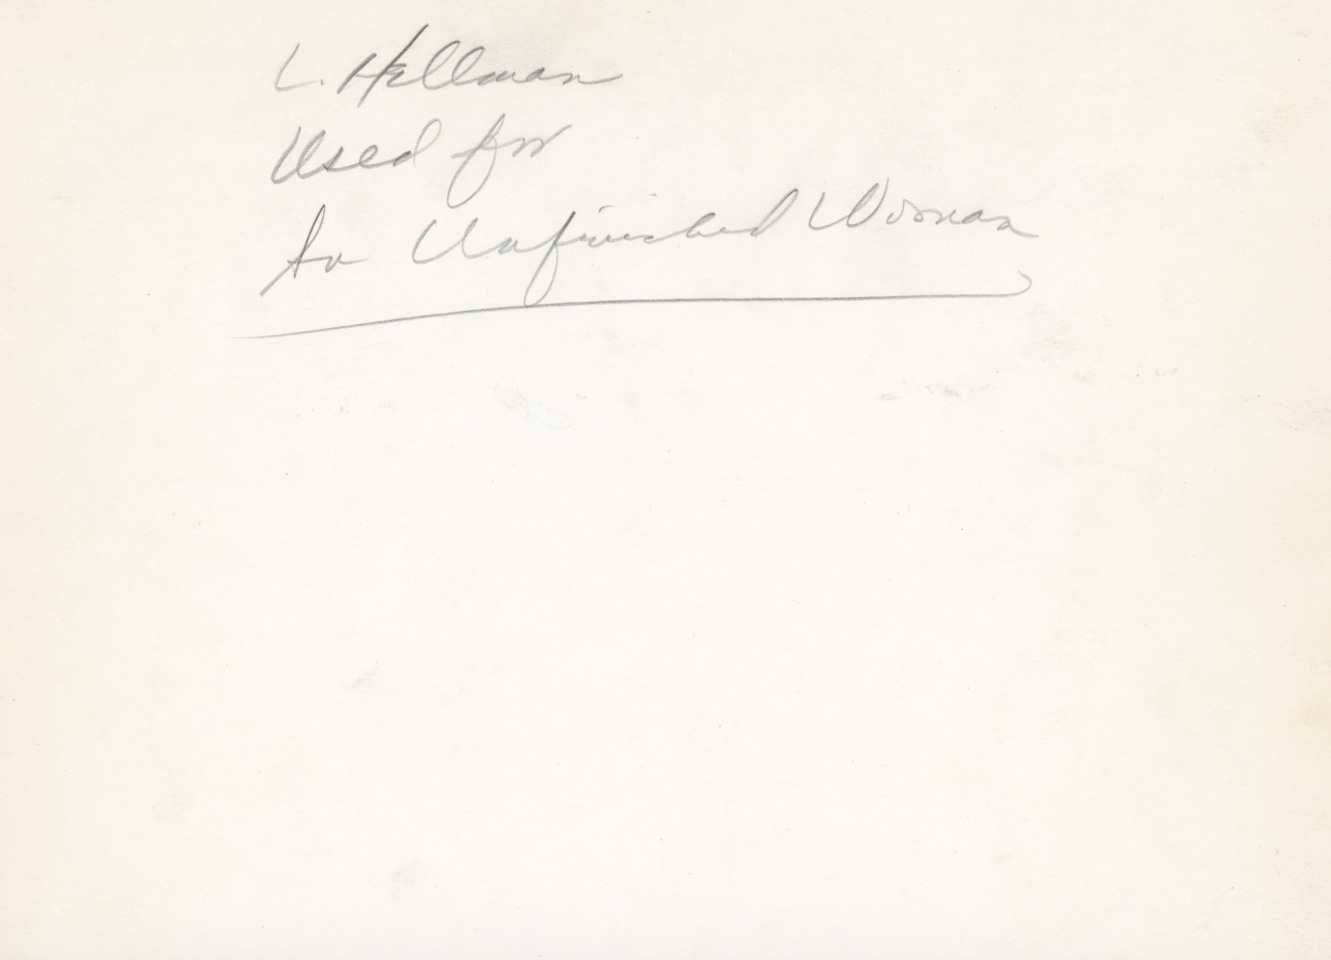 L. Hellman
Used for
An Unfinished Woman